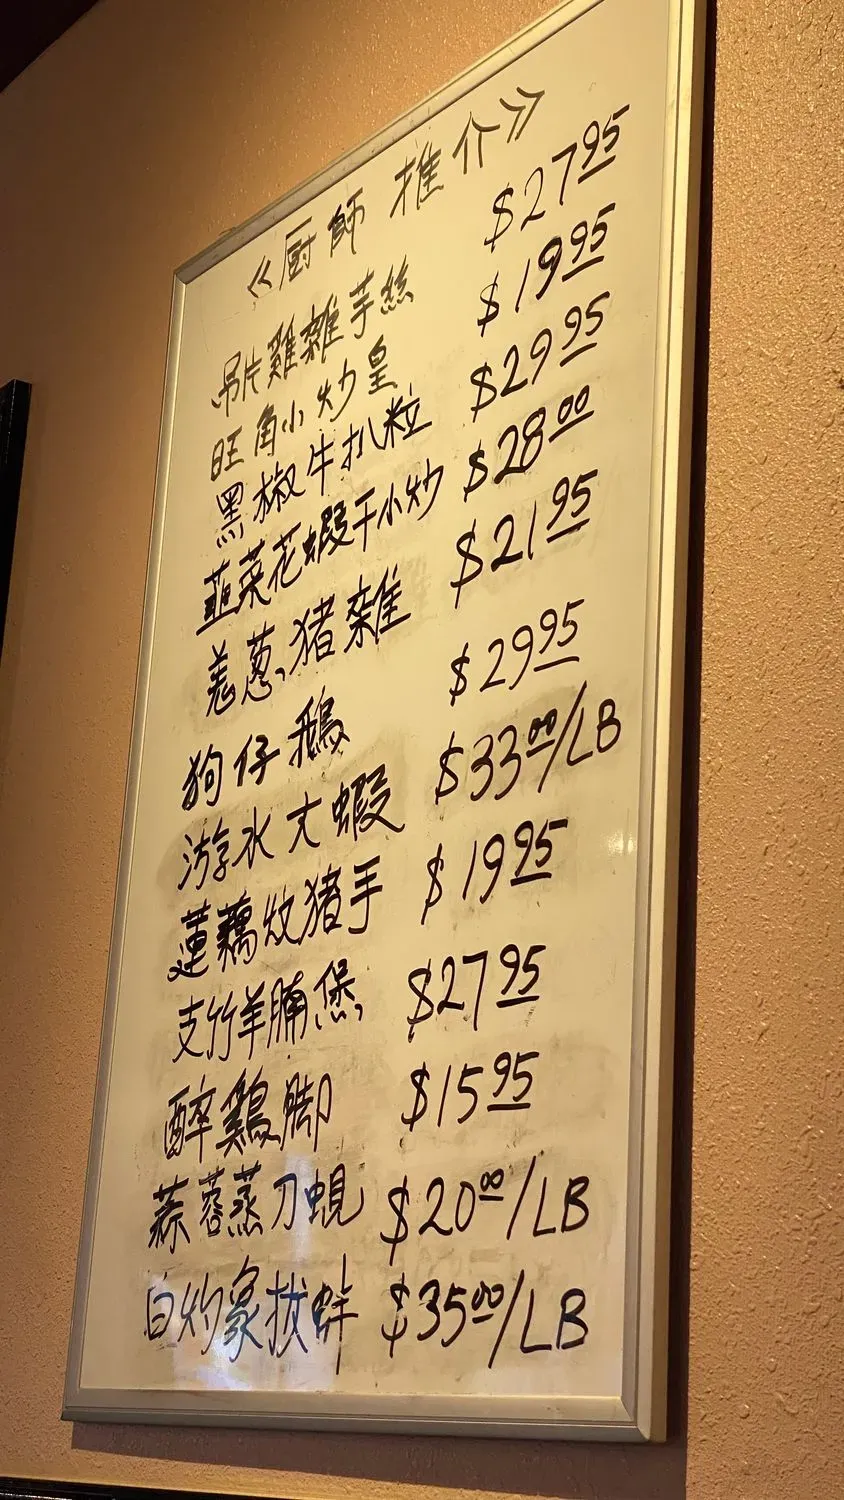 《厨師推介》
吊片雞雜芋絲 $27.95
旺角小炒皇 $19.95
黑椒牛扒粒 $29.95
韮菜花蝦干小炒 $28.00
羗葱猪雜 $21.95
狗仔鵝 $29.95
游水大蝦 $33.00/LB
蓮藕炆猪手 $19.95
支竹羊腩煲 $27.95
醉鷄脚 $15.95
蒜蓉蒸刀蜆 $20.00/LB
白灼象拔蚌 $35.00/LB